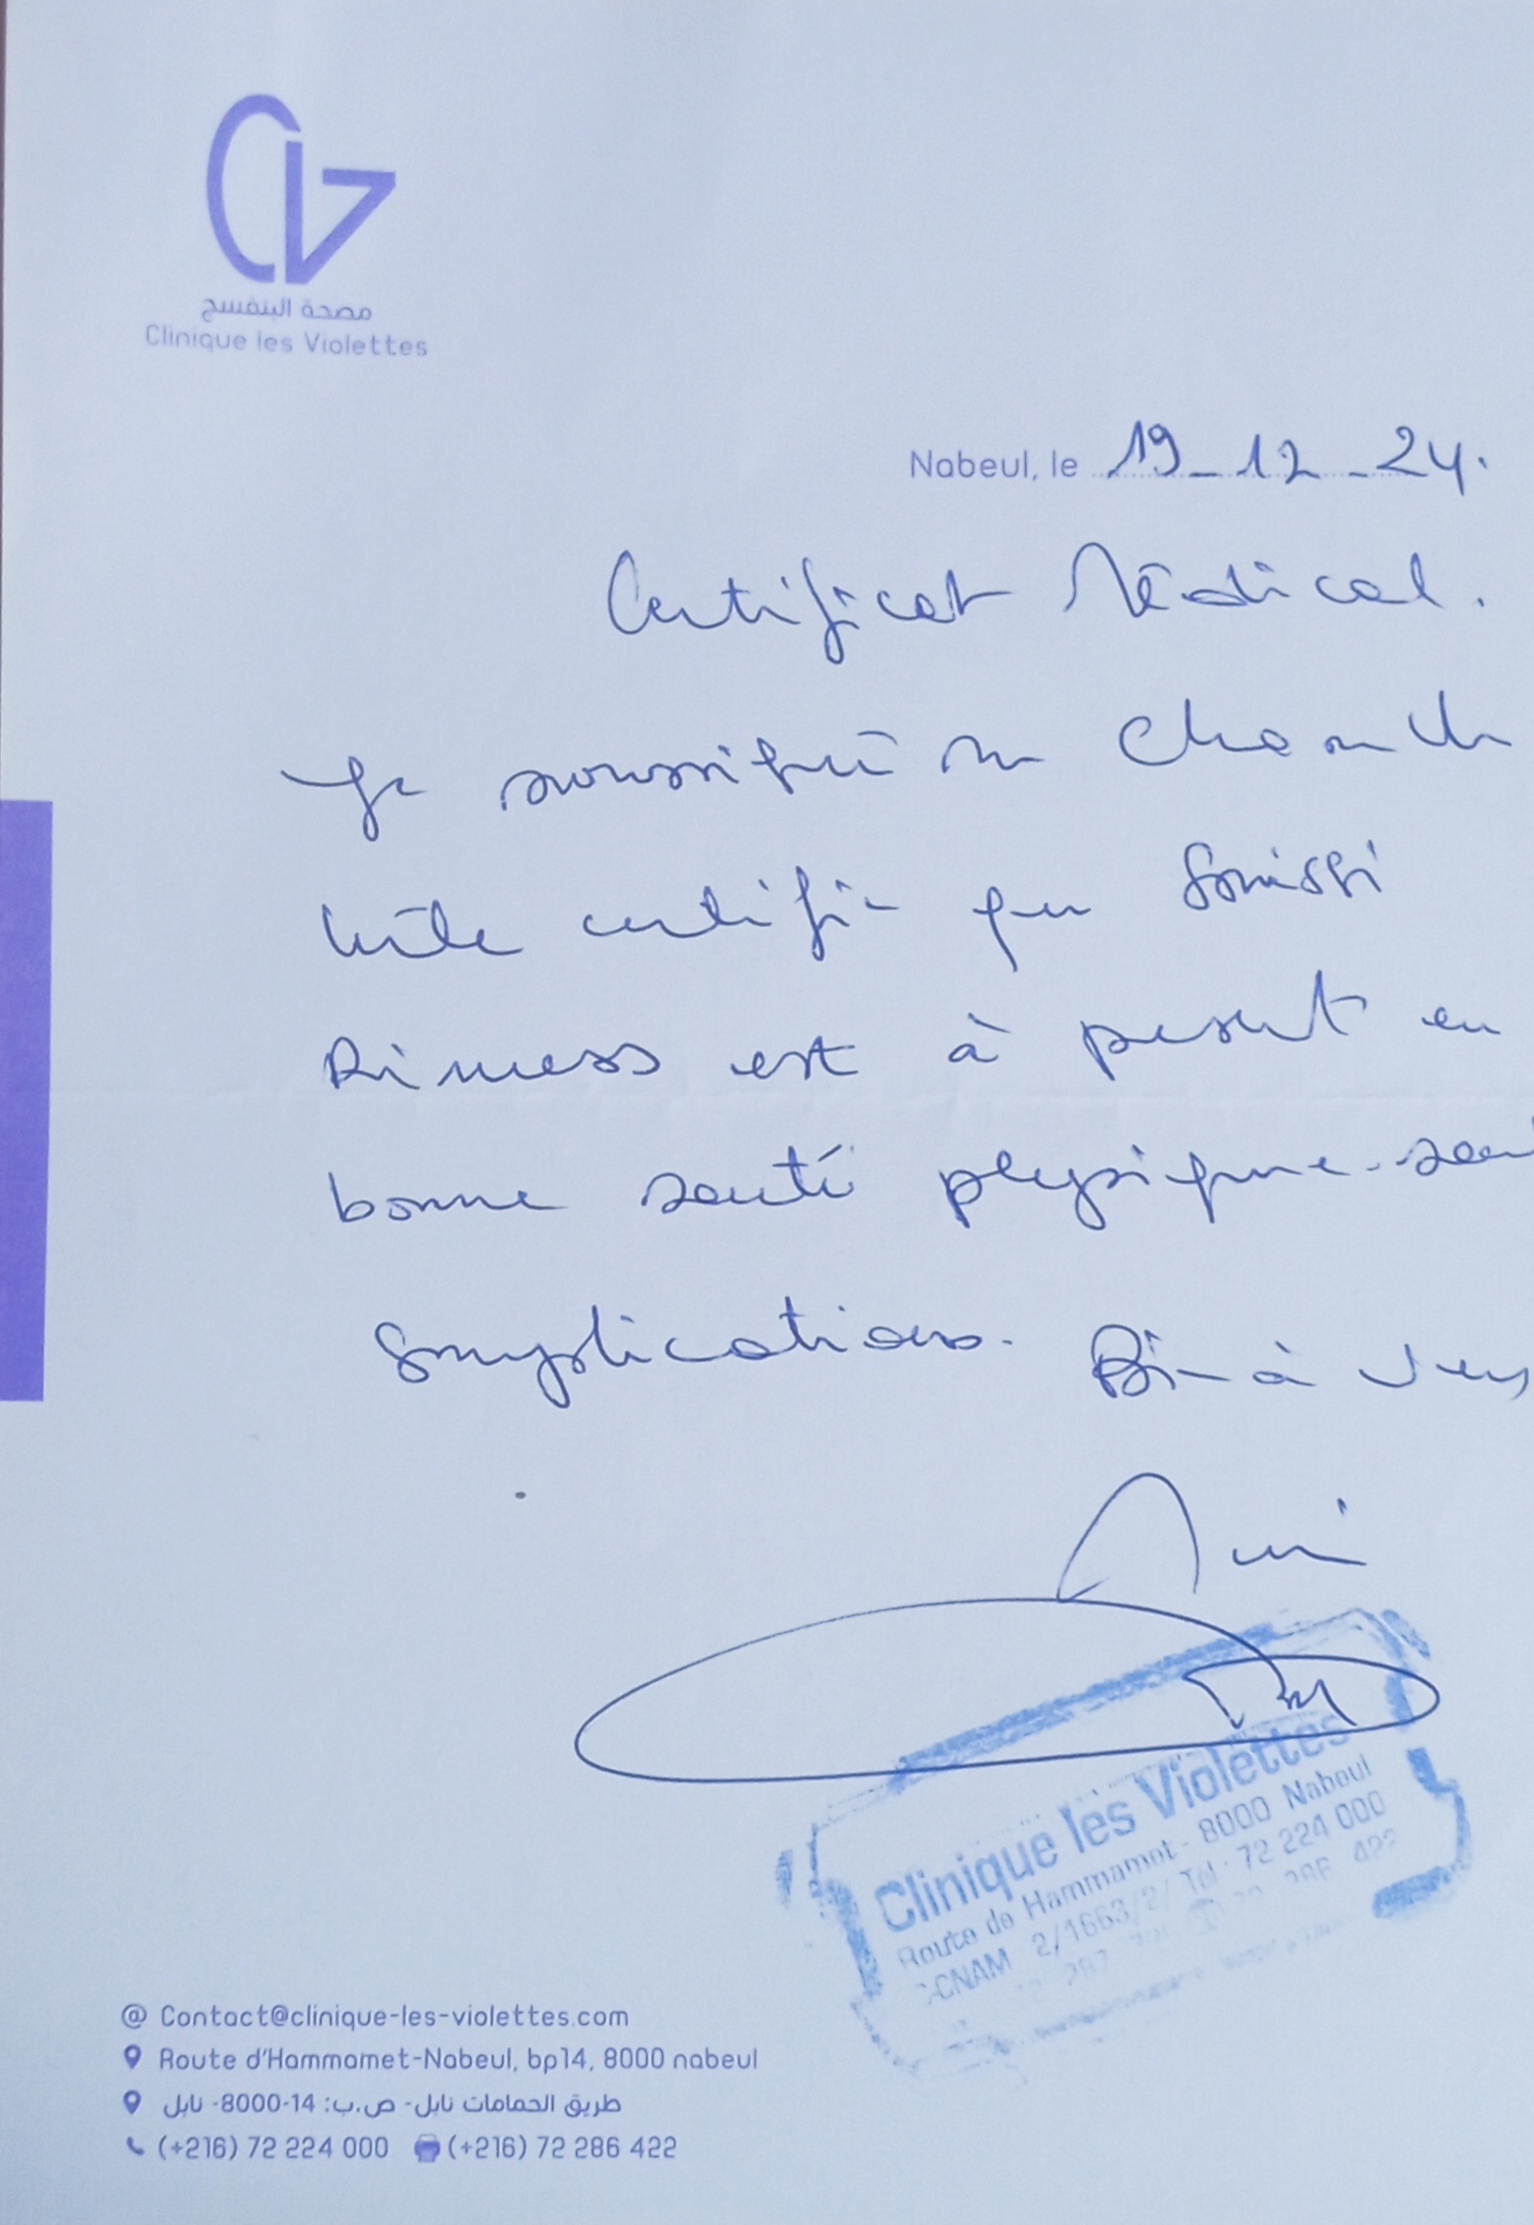 مصحة البنفسج
Clinique les Violettes
Nabeul, le 19_12_24.
Certificat Médical.
Je soussigné
certifie que Souissi
est à present en
bonne santé physique
complications. Bien à vous
Clinique les Violettes
Route de Hammamet - 8000 Nabeul
CNAM 2/1663/2/ Tél : 72 224 000
@ Contact@clinique-les-violettes.com
Route d'Hammamet-Nabeul, bp14, 8000 nabeul
طريق الحمامات نابل- ص.ب: 14-8000- نابل
(+216) 72 224 000 (+216) 72 286 422